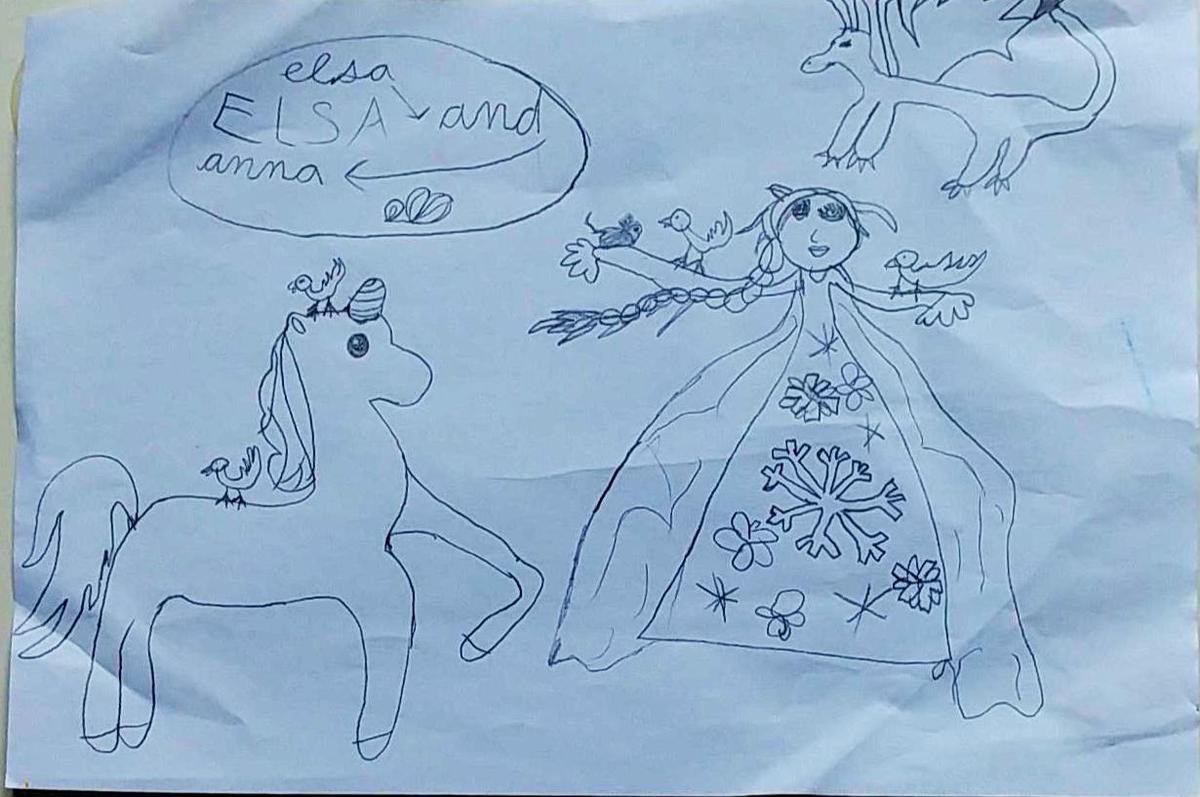 elsa
ELSA and
anna